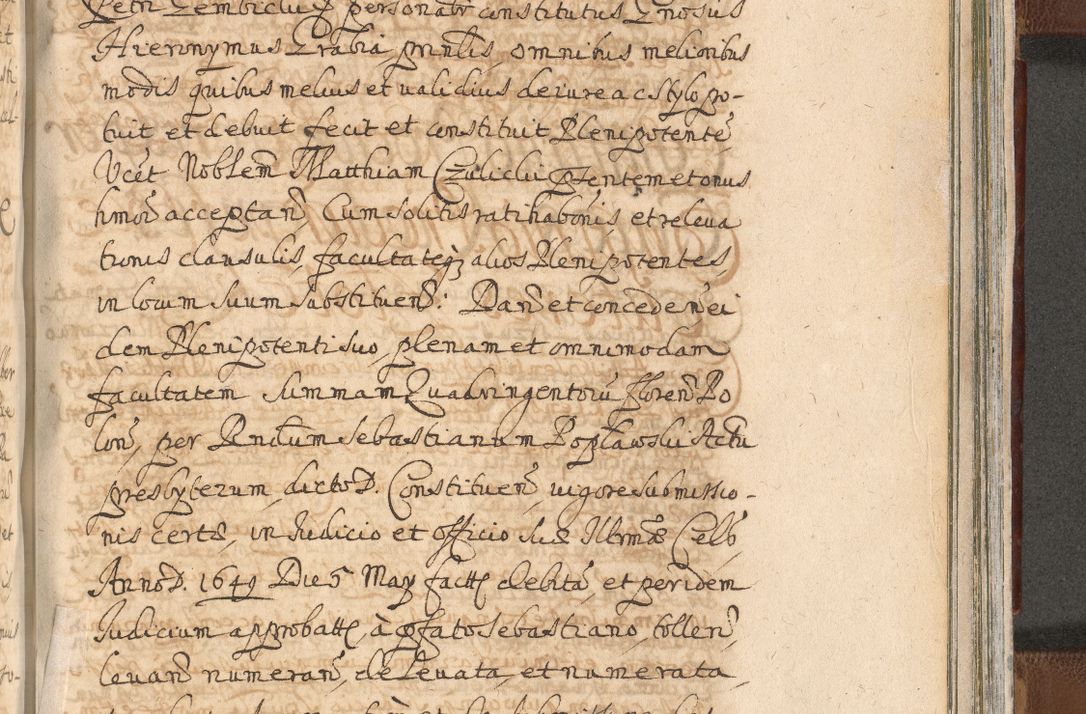 Petri Zembicki personalr constitutus Gnosus
Hieronymus Grabia, principalis, omnibus melioribus
modis quibus melius et validius de iure ac stylo po-
tuit et debuit fecit et constituit Plenipotente
Vcet Noblem Matthiam Czuliclii pñtem et onus
hmoi acceptan, Cum solitis ratihabonis, et releva
tionis clausulis, facultateq alios Plenipotentes,
in locum suum substituend: Dan et conceden ei
dem Plenipotenti suo, plenam et omnimodam
facultatem summam Quadringentoru floren Po
lon, per Rndum Sebastianum Popławski Actu
presbyterum, dicto D. Constituen vigore submissio-
nis certæ, in Judicio et officio Suæ Illrmæ Cels,
Anno D. 1649 Die 5 Maÿ factæ debita, et per idem
Judicium approbattæ, à pfato Sebastiano, tollen
levan numeran, de levata, et numerata,